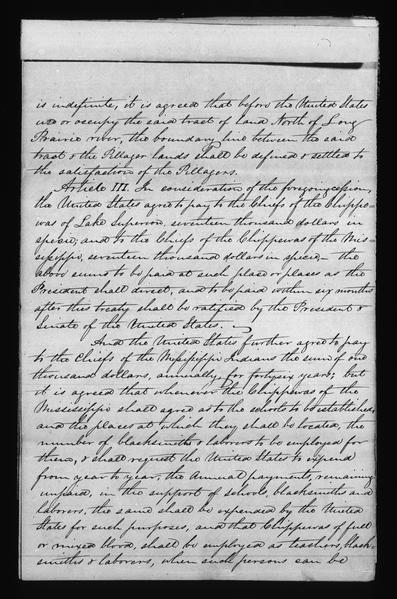 is indefinite, it is agreed that before the United States
use or occupy the said tract of land North of Long
Prairie river, the boundary line between the said
tract & the Pillager lands shall be defined & settled to
the satisfaction of the Pillagers.
Article III. In consideration of the foregoing cession,
the United States agree to pay to the Chiefs of the Chippe-
was of Lake Superior, seventeen thousand dollars in
specie, and to the Chiefs of the Chippewas of the Mis-
sissippi, seventeen thousand dollars in specie;- the
above sums to be paid at such place or places as the
President shall direct, and to be paid within six months
after this treaty shall be ratified by the President &
Senate of the United States.
And the United States further agree to pay
to the Chiefs of the Mississippi Indians the sum of one
thousand dollars, annually, for forty six years; but
it is agreed that whenever the Chippewas of the
Mississippi shall agree as to the schools to be established,
and the places at which they shall be located, the
number of blacksmiths & laborers to be employed for
them, & shall request the United States to expend
from year to year, the annual payments, remaining
unpaid, in the support of schools, blacksmiths and
laborers, the same shall be expended by the United
States for such purposes, and that Chippewas of full
or mixed blood, shall be employed as teachers, black-
smiths & laborers, when such persons can be